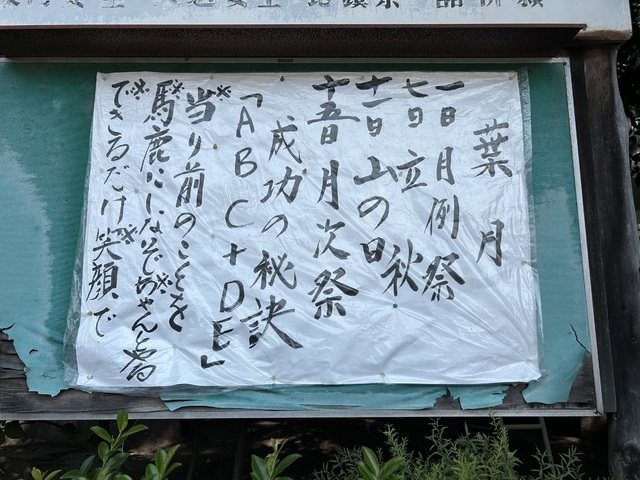 葉月
一日 月例祭
七日 立秋
十一日 山の日
十五日 月次祭
成功の秘訣
「ABC+DE」
※当り前のことを
※馬鹿にしなぞ※ちゃんとやる
※できるだけ※笑顔、で